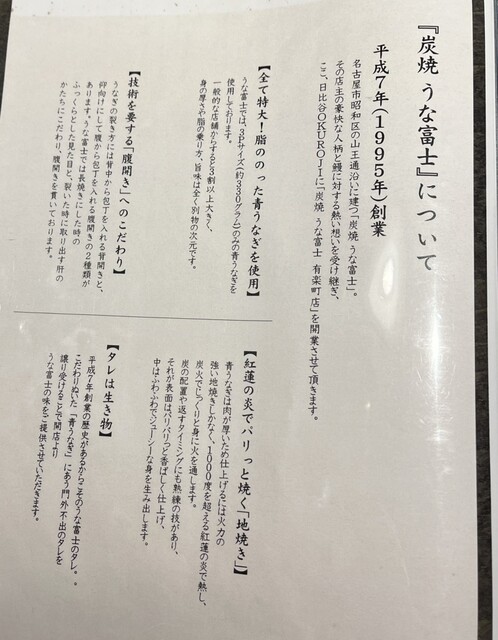 『炭焼 うな富士』について
平成7年(1995年)創業
名古屋市昭和区の山王通沿いに建つ「炭焼 うな富士」。
その店主の豪快な人柄と鰻に対する熱い想いを受け継ぎ、
ここ、日比谷OKUROJIに「炭焼 うな富士 有楽町店」を開業させて頂きます。
【全て特大！脂ののった青うなぎを使用】
うな富士では、3Pサイズ(約330グラム)のみの青うなぎを
使用しております。
一般的な店舗からすると3割以上大きく、
身の厚さや脂の乗り方、旨味は全く別物の次元です。
【技術を要する「腹開き」へのこだわり】
うなぎの裂き方には背中から包丁を入れる背開きと、
仰向けにして腹から包丁を入れる腹開きの2種類が
あります。うな富士では長焼きにした時の
ふっくらとした見た目と、裂いた時に取り出す肝の
かたちにこだわり、腹開きを貫いております。
【紅蓮の炎でパリっと焼く「地焼き」】
青うなぎは肉が厚いため仕上げるには火力の
強い地焼きしかなく、1000度を超える紅蓮の炎で熱し、
炭火でじっくりと身に火を通します。
炭の配置や返すタイミングにも熟練の技があり、
それが表面はパリパリっと香ばしく仕上げ、
中はふわふわでジューシーな身を生み出します。
【タレは生き物】
平成7年創業の歴史があるからこそのうな富士のタレ。
こだわりぬいた「青うなぎ」にあう門外不出のタレを
譲り受けることで開店より
うな富士の味をご提供させていただきます。